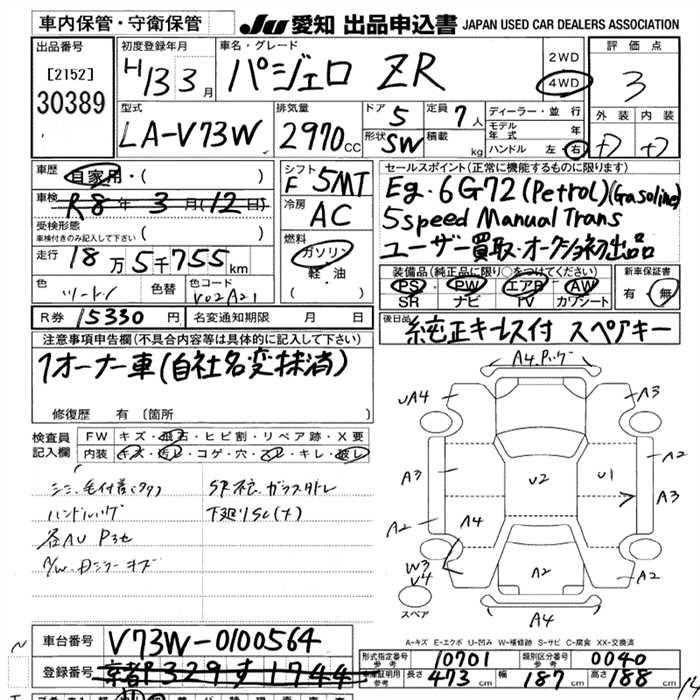 車内保管・守衛保管
JU 愛知 出品申込書 JAPAN USED CAR DEALERS ASSOCIATION
出品番号
[2152]
30389
初度登録年月
H 13 3月
車名・グレード
パジェロ ZR
2WD
4WD
評価点
3
型式
LA-V73W
排気量
2970cc
ドア 5
形状 SW
定員 7人
積載 kg
ディーラー・並行
モデル年式 年
ハンドル 左・右
外装 内装
車歴
自家用・( )
車検 R8年 3月(12日)
受検形態
車検付きのみ記入して下さい ( )
走行 18万5千755km
色 ツートン 色替 色コード V02A21
シフト F 5MT
冷房 AC
燃料
ガソリン
軽・油
( )
セールスポイント(正常に機能するものに限ります)
Eg. 6G72 (Petrol)(Gasoline)
5speed Manual Trans
ユーザー買取・オークション初出品
装備品(純正品に限り○をつけてください)
PS・PW・エアB・AW
SR ナビ TV カワシート
新車保証書
有・無
R券 15330円 名変通知期限 月 日
後日品 純正キーレス付 スペアキー
注意事項申告欄(不具合内容等は具体的に記入して下さい)
1オーナー車(自社名変抹消)
修復歴 有 〔箇所 〕
検査員記入欄
FW キズ・飛石・ヒビ割・リペア跡・X要
内装 キズ・汚レ・コゲ・穴・スレ・キレ・破レ
ハンドルハゲ
A4 Pハゲ
UA4
A3
A3
A2
U2
U1
A2
A3
A2
A4
W3
V4
A2
A2
A4
スペア
A-キズ E-エクボ U-凹み W-補修跡 S-サビ C-腐食 XX-交換済
車台番号 V73W-0100564
登録番号 329 す 1744
形式指定番号 参考 10701 類別区分番号 参考 0040
車庫証明用 参考 長さ 473cm 幅 187cm 高さ 188cm